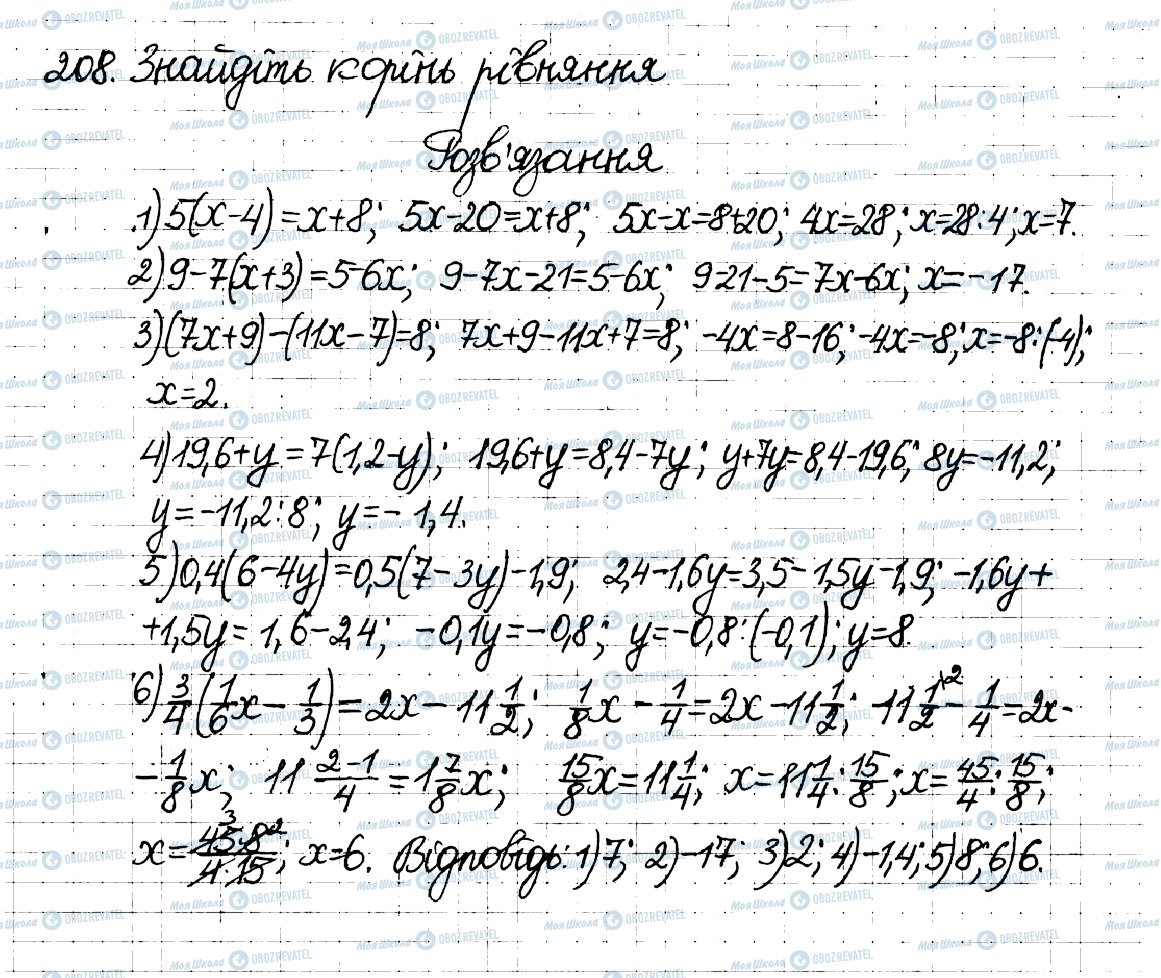 208. Знайдіть корінь рівняння
Розв'язання
1) 5(x-4)=x+8; 5x-20=x+8; 5x-x=8+20; 4x=28; x=28:4; x=7.
2) 9-7(x+3)=5-6x; 9-7x-21=5-6x; 9-21-5=7x-6x; x=-17.
3) (7x+9)-(11x-7)=8; 7x+9-11x+7=8; -4x=8-16; -4x=-8; x=-8:(-4);
x=2.
4) 19,6+y=7(1,2-y); 19,6+y=8,4-7y; y+7y=8,4-19,6; 8y=-11,2;
y=-11,2:8; y=-1,4.
5) 0,4(6-4y)=0,5(7-3y)-1,9; 2,4-1,6y=3,5-1,5y-1,9; -1,6y+
+1,5y=1,6-2,4; -0,1y=-0,8; y=-0,8:(-0,1); y=8.
6) 3/4(1/6x-1/3)=2x-11 1/2; 1/8x-1/4=2x-11 1/2; 11 1/2\2-1/4=2x-
-1/8x; 11 2-1/4=1 7/8x; 15/8x=11 1/4; x=11 1/4:15/8; x=45/4:15/8;
x=45³·8²/4·15; x=6. Відповідь: 1) 7; 2) -17; 3) 2; 4) -1,4; 5) 8; 6) 6.